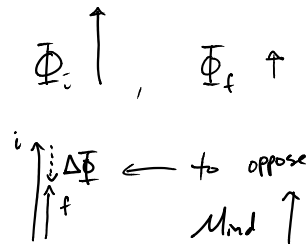 Φi ↑ , Φf ↑
i ΔΦ ← to oppose
f Mind ↑